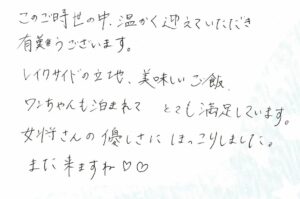 このご時世の中、温かく迎えていただき
有難うございます。
レイクサイドの立地、美味しいご飯、
ワンちゃんも泊まれて とても満足しています。
女将さんの優しさに ほっこりしました。
また来ますね♡♡